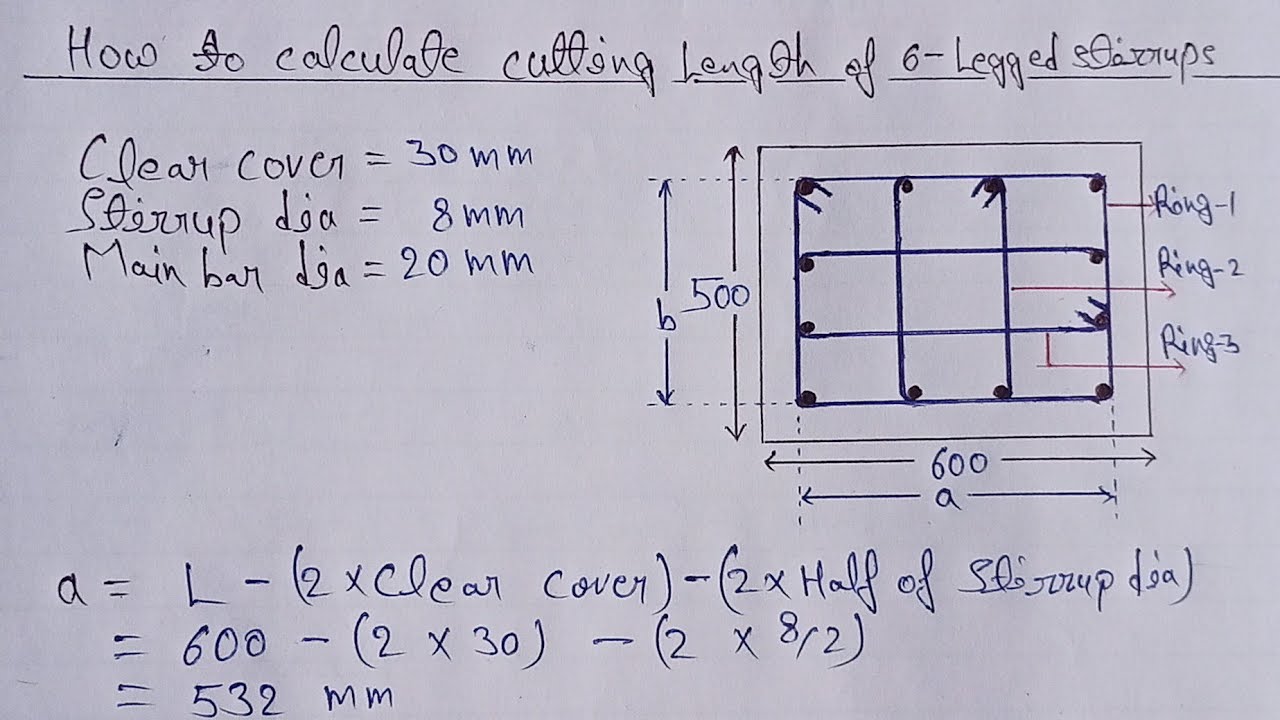 How to calculate cutting Length of 6-Legged stirrups
Clear cover = 30 mm
Stirrup dia = 8 mm
Main bar dia = 20 mm
Ring-1
Ring-2
Ring-3
b
500
600
a
a = L - (2 × Clear cover) - (2 × Half of Stirrup dia)
= 600 - (2 × 30) - (2 × 8/2)
= 532 mm